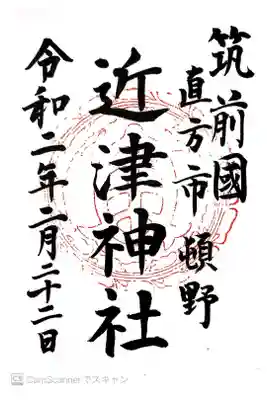 筑前國
直方市 頓野
近津神社
令和二年二月二十二日
CS CamScanner でスキャン